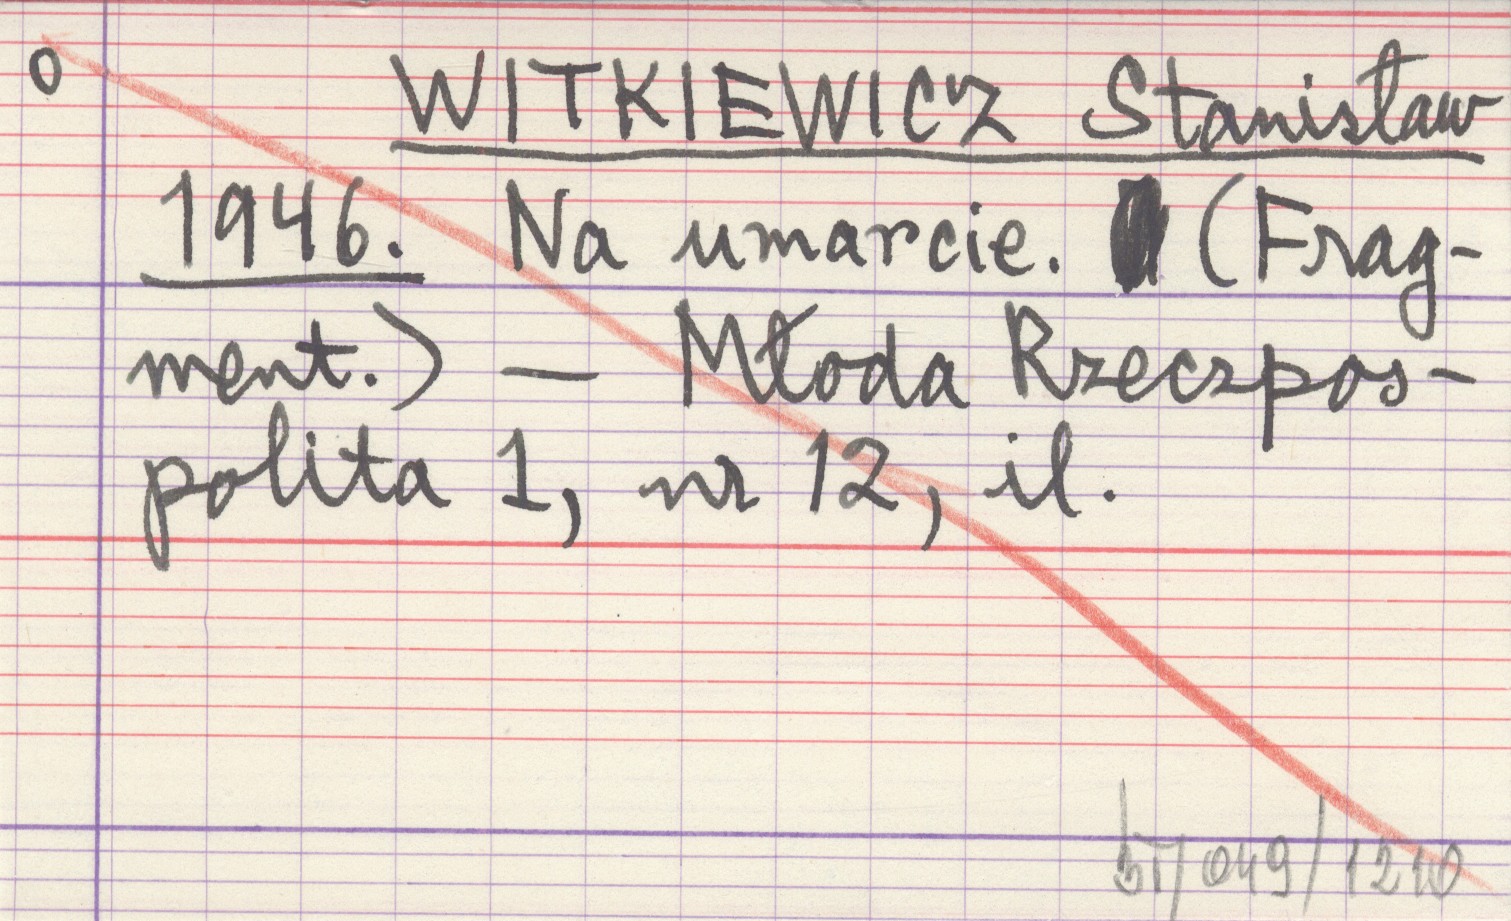 o WITKIEWICZ Stanisław
1946. Na umarcie. (Frag-
ment.) — Młoda Rzeczpos-
polita 1, nr 12, il.
/049/1210